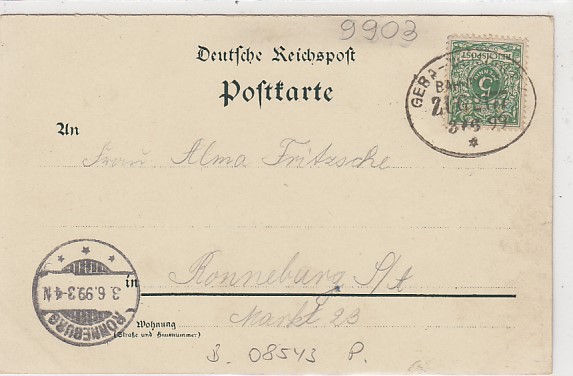 9903
Deutsche Reichspost
Postkarte
REICHSPOST
5
GERA
BAHN
3 6 99
An
Frau Alma Fritzsche
in
Ronneburg S/A
Markt 23
Wohnung
(Straße und Hausnummer)
RONNEBURG
3.6.99.3-4N
B. 08543 P.